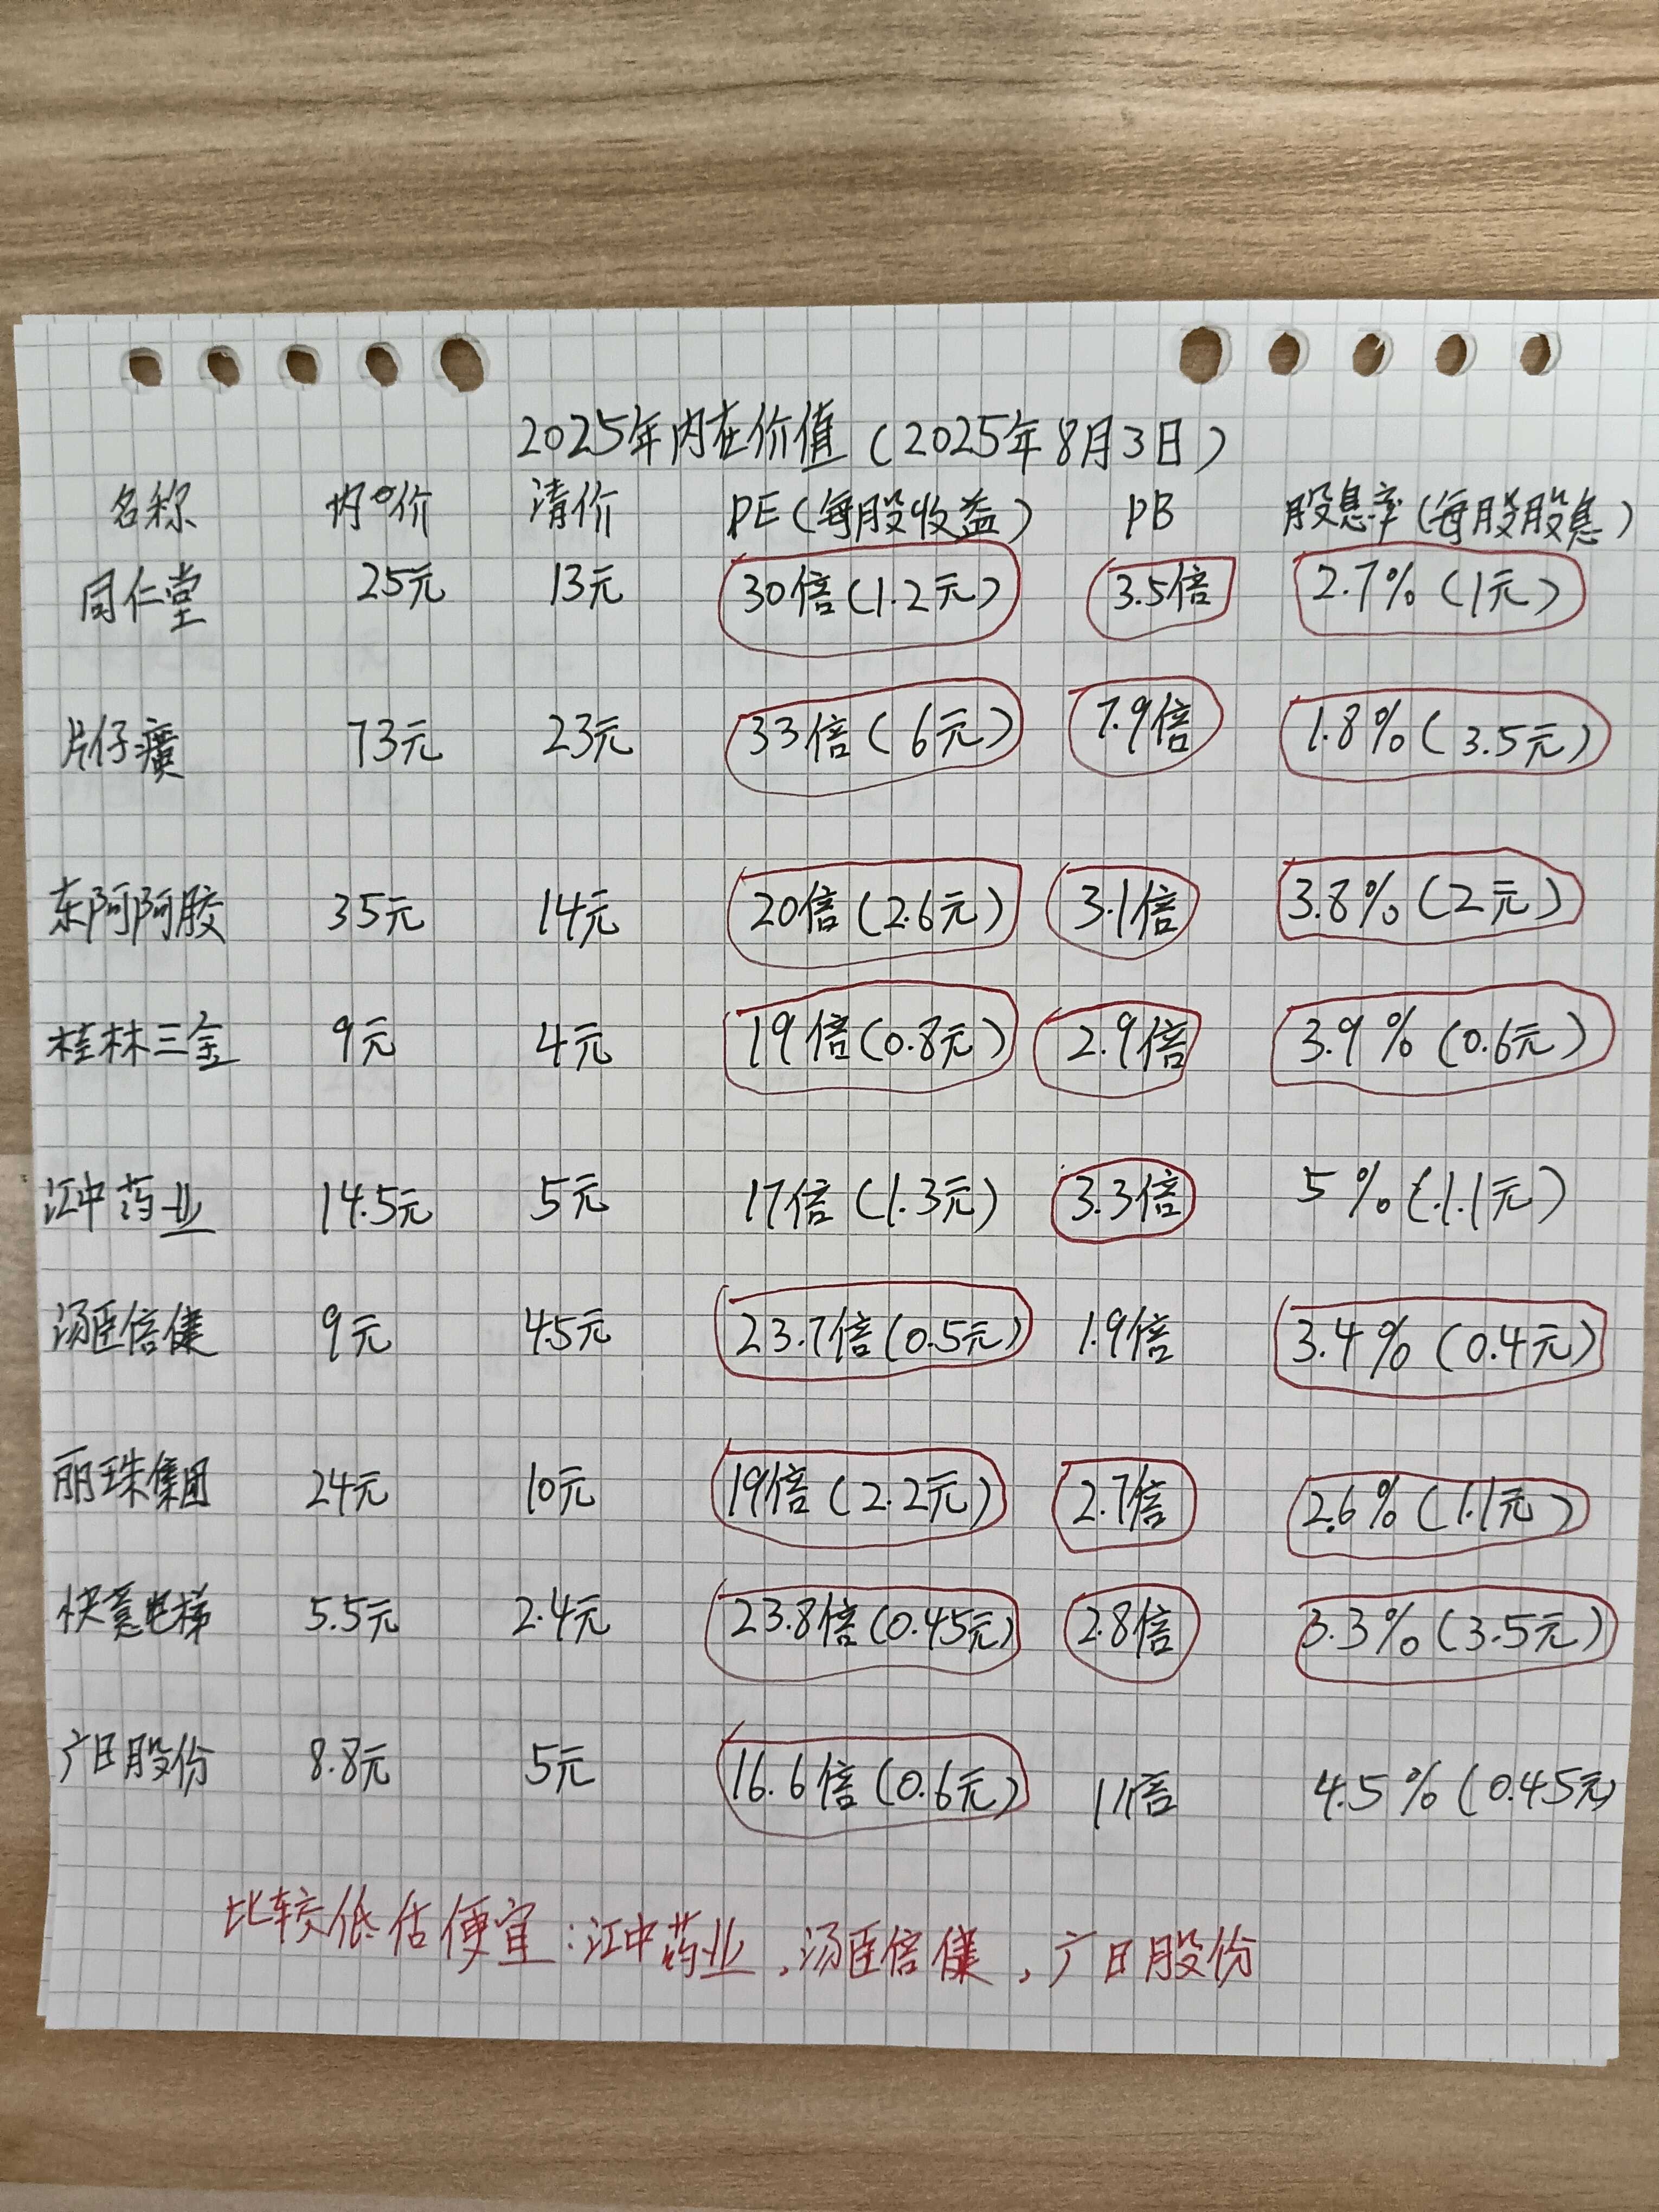 2025年内在价值（2025年8月3日）
名称 内在价 清价 PE（每股收益） PB 股息率（每股股息）
同仁堂 25元 13元 30倍（1.2元） 3.5倍 2.7%（1元）
片仔癀 73元 23元 33倍（6元） 7.9倍 1.8%（3.5元）
东阿阿胶 35元 14元 20倍（2.6元） 3.1倍 3.8%（2元）
桂林三金 9元 4元 19倍（0.8元） 2.9倍 3.9%（0.6元）
江中药业 14.5元 5元 17倍（1.3元） 3.3倍 5%（1.1元）
汤臣倍健 9元 4.5元 23.7倍（0.5元） 1.9倍 3.4%（0.4元）
丽珠集团 24元 10元 19倍（2.2元） 2.7倍 2.6%（1.1元）
快意电梯 5.5元 2.4元 23.8倍（0.45元） 2.8倍 3.3%（3.5元）
广日股份 8.8元 5元 16.6倍（0.6元） 1.1倍 4.5%（0.45元）
比较低估便宜：江中药业，汤臣倍健，广日股份